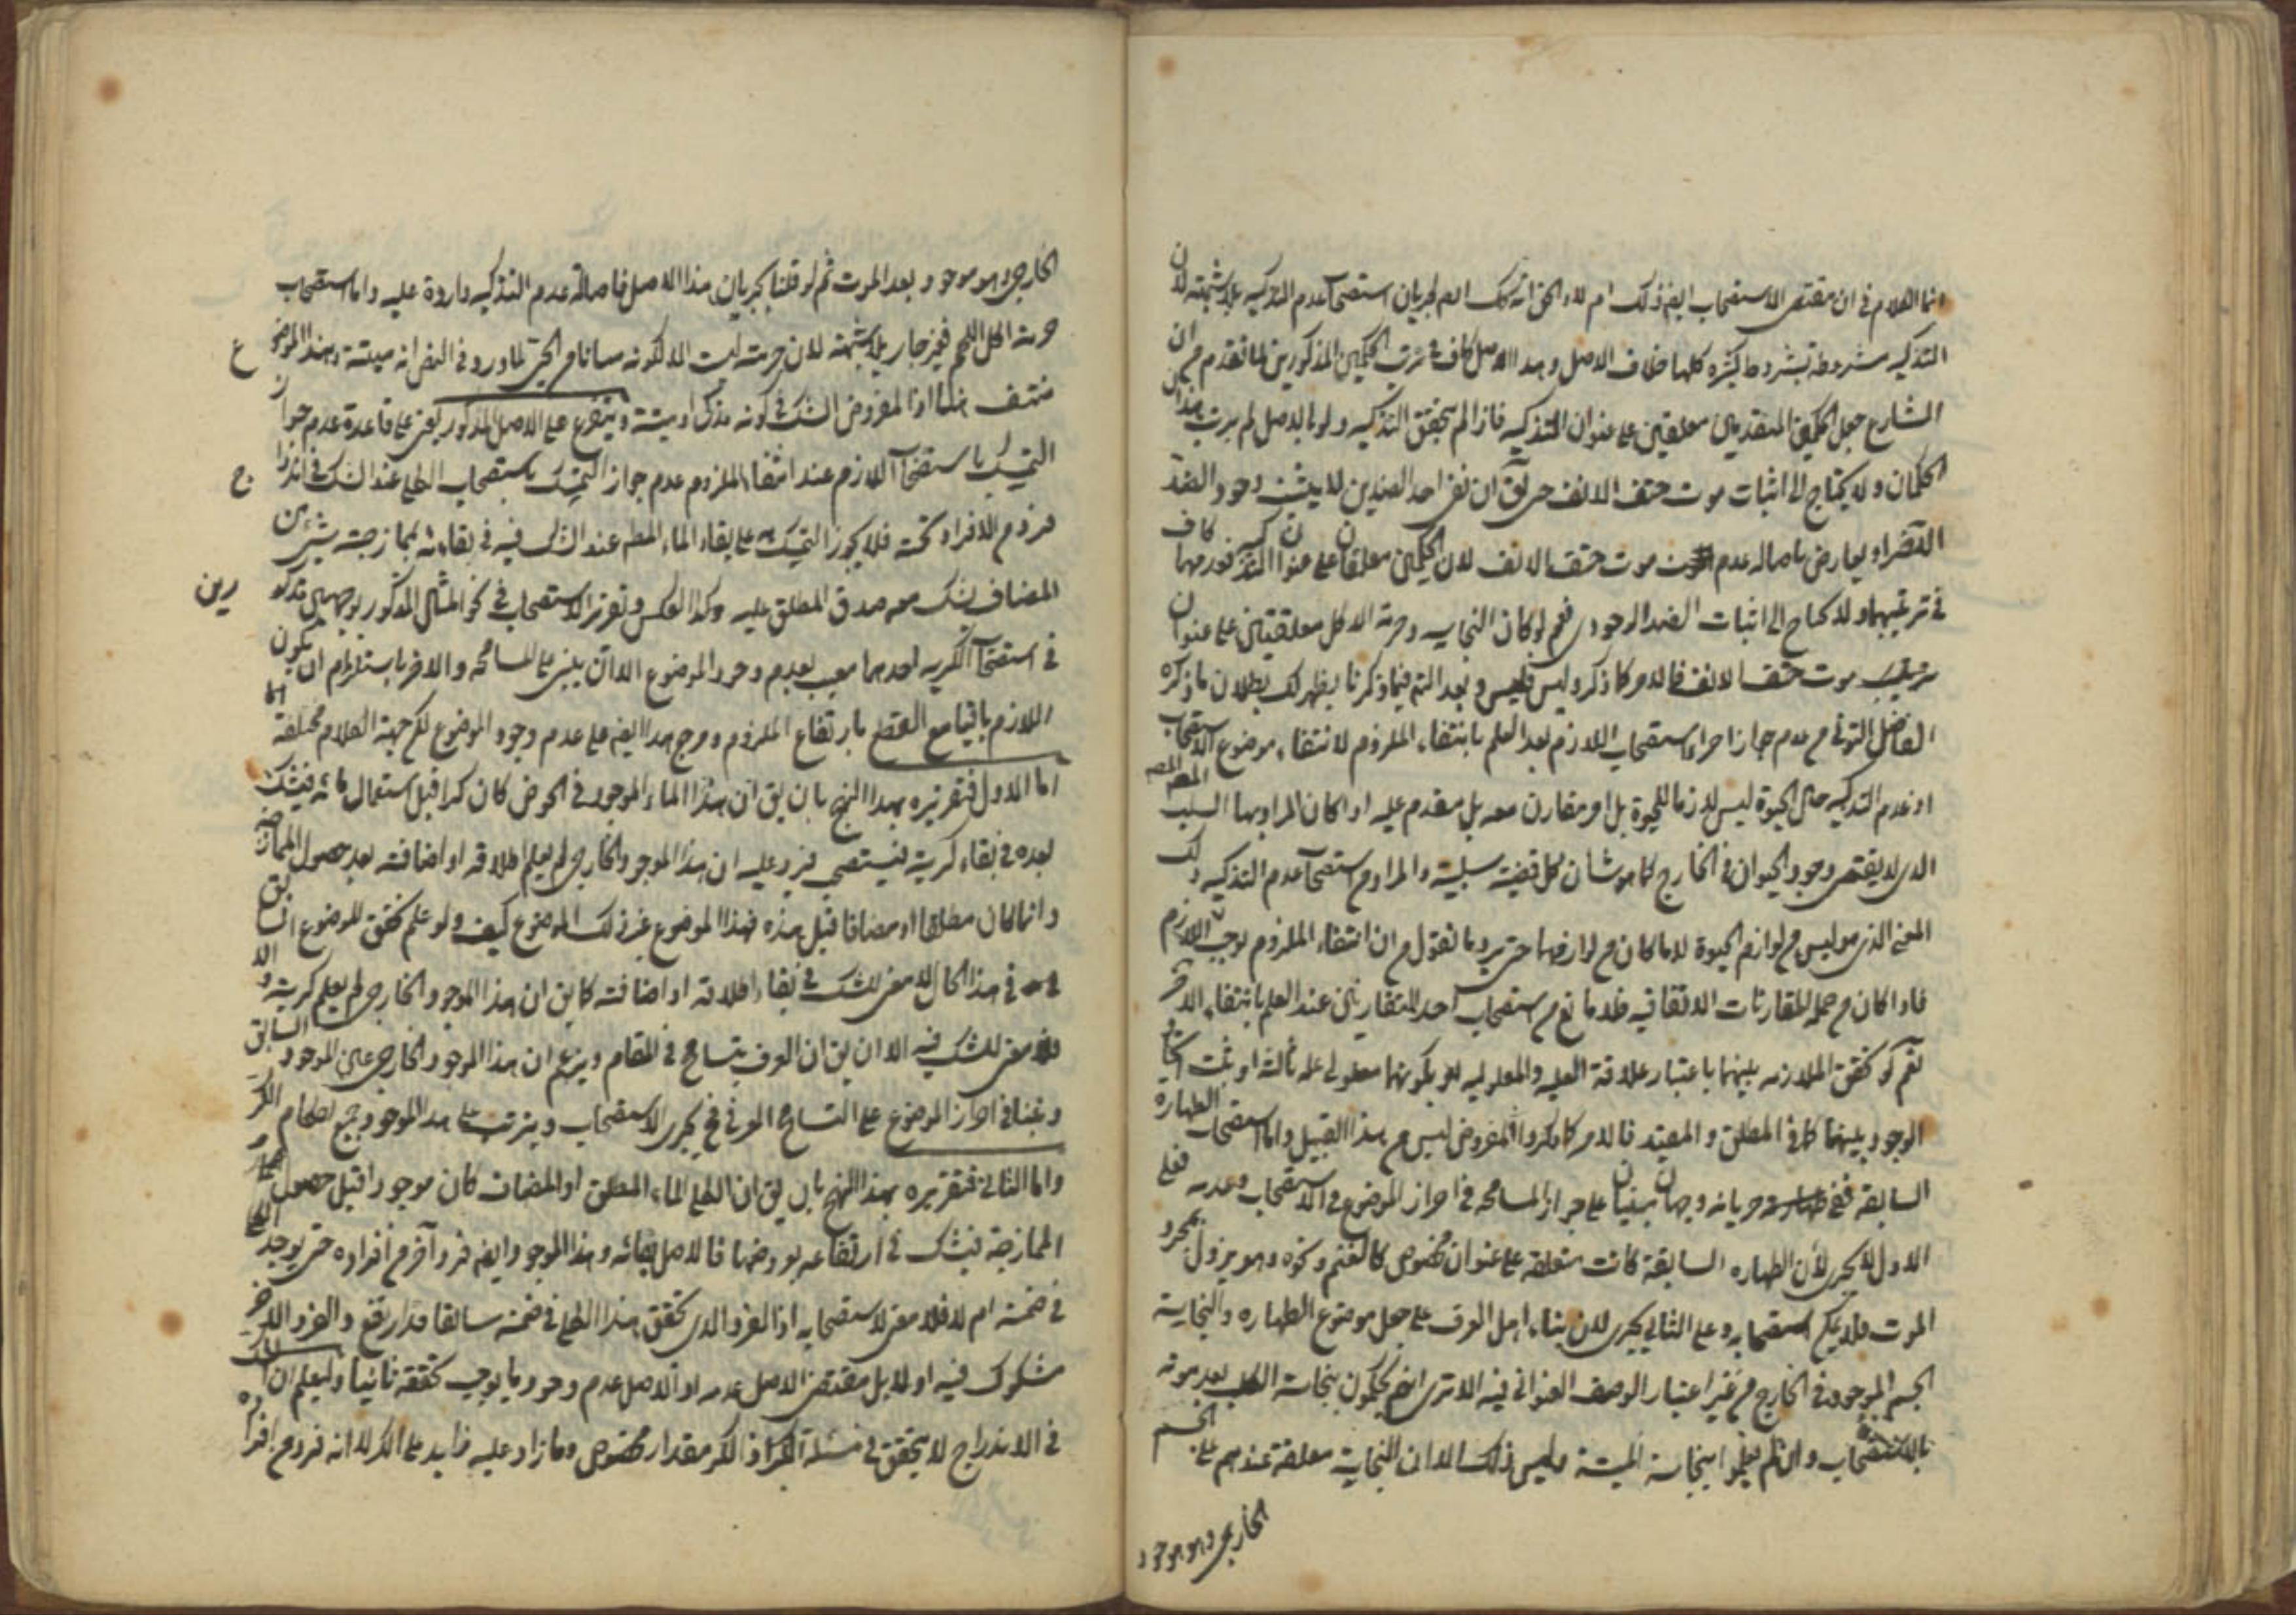 انما الكلام في ان مقتضى الاستصحاب ايض ذلك ام لا والحق انه كك ايض لجريان استصحاب عدم التذكيه بلا شبهة لان
التذكيه مشروطة بشروط كثيره كلها خلاف الاصل وهذا الاصل كاف في ترتب الحكمين المذكورين لما تقدم من ان
الشارع جعل الحكمين المتقدمين معلقين على عنوان التذكيه فاذا لم يتحقق التذكيه ولو بالاصل لم يرتب هذان
الحكمان ولا يحتاج الى اثبات موت حتف الانف حتى يق ان نفى احد الضدين لا يثبت وجود الضد
الآخر او يعارض باصالة عدم موت حتف الانف لان الحكمين معلقان على عنوان التذكيه كاف
في ترتبهما ولا يحتاج الى اثبات الضد الوجودي نعم لو كان النجاسه وحرمة الاكل معلقتين على عنوان
موت حتف الانف فالامر كما ذكر وليس فليس وبعد التم فيما ذكرنا يظهر لك بطلان ما ذكره
الفاضل التوني من عدم جواز اجراء استصحاب اللازم بعد العلم بانتفاء الملزوم لانتفاء موضوع الاستصحاب
اذ عدم التذكيه حال الحيوة ليس لازما للحيوة بل امر مقارن معه بل مقدم عليه اذا كان المراد بها السلب
الذي لا يقتضى وجود الحيوان في الخارج كما هو شان كل قضية سلبية والمراد من استصحاب عدم التذكيه ذلك
المعنى الذى هو ليس من لوازم الحيوة لا ما كان من لوازمها حتى يرد ما نقول من ان انتفاء الملزوم يوجب اللازم
فاذا كان من جملة المقارنات الاتفاقيه فلا مانع من استصحاب احد المتقارنين عند العلم بانتفاء الاخر
نعم لو تحقق الملازمه بينهما باعتبار علاقة العليه والمعلوليه او بكونهما معلولى علة ثالثة او ثبت اتحاد
الوجود بينهما كما في المطلق والمقيد فالامر كما ذكروا المفروض ليس من هذا القبيل واما استصحاب الطهارة
السابقة ففى جريانه وجهان مبنيان على جواز المسامحه في احراز الموضوع في الاستصحاب وعدمه فعلى
الاول لا يجرى لان الطهاره السابقة كانت متعلقه على عنوان مخصوص كالغنم ونحوه وهو يزول بمجرد
الموت فلا يمكن استصحابه وعلى الثاني يجرى لان بناء اهل العرف على جعل موضوع الطهاره والنجاسة
الجسم الموجود في الخارج من غير اعتبار الوصف العنوانى فيه الا ترى انهم يحكمون بنجاسة الكلب بعد موته
بالاستصحاب وان لم يعلموا بنجاسة الميتة وليس ذلك الا ان النجاسة معلقة عندهم على الجسم
الخارجى وهو موجود
الخارجى وهو موجود بعد الموت ثم لو قلنا بجريان هذا الاصل فاصالة عدم التذكيه واردة عليه واما استصحاب
حرمة اكل اللحم فغير جار بلا شبهة لان حرمته ليست الا لكونه مبانا من الحى لما ورد في النص انه ميتة وهذا الموضوع
منتف هنا اذ المفروض الشك في كونه مذكى او ميتة ويتفرع على الاصل المذكور يعنى على قاعدة عدم جواز
التمسك باستصحاب اللازم عند انتفاء الملزوم عدم جواز التمسك باستصحاب الكلى عند الشك في اندراج
فرد من الافراد تحته فلا يجوز التمسك على بقاء الماء المطلق عند الشك فيه في بقائه بممازجته شيئ من
المضاف يشك معه صدق المطلق عليه وكذا العكس وتقرير الاستصحاب في نحو المثال المذكور بوجهين مذكورين
في استصحاب الكرية احدهما معيب بعدم وجود الموضوع الا ان يبنى على المسامحه والاخر باستلزام ان يكون
اللازم باقيا مع القطع بارتفاع الملزوم ومرجع هذا ايض على عدم وجود الموضوع لكن جهة الكلام مختلفة
اما الاول فتقريره بهذا النهج بان يق ان هذا الماء الموجود في الحوض كان كرا قبل استعمال مائه فيشك
بعده في بقاء كريته فيستصحب فيرد عليه ان هذا الموجود الخارجى لم يعلم اطلاقه او اضافته بعد حصول الممازجة
وانما كان مطلقا او مضافا قبل هذه فهذا الموضوع غير ذلك الموضوع كيف ولو علم تحقق الموضوع السابق
في هذا الحال لا معنى للشك في بقاء اطلاقه او اضافته كما يق ان هذا الموجود الخارجى لم يعلم كريته والا
فلا معنى للشك فيه الا ان يق ان العرف يتسامح في المقام ويزعم ان هذا الموجود الخارجى عين الموجود السابق
وبنينا في احراز الموضوع على التسامح العرفى فح يجرى الاستصحاب ويترتب على هذا الموجود جميع احكام الكر
واما الثانى فتقريره بهذا النهج بان يق ان الكلى الماء المطلق او المضاف كان موجودا قبل حصول
الممازجة فيشك في ارتفاعه بعروضها فالاصل بقائه وهذا الموجود ايض فرد آخر من افراده حتى يوجد
في ضمنه ام لا فلا معنى لاستصحابه اذ الفرد الذى تحقق هذا الكلى في ضمنه سابقا قد ارتفع والفرد الاخر
مشكوك فيه اولا بل مقتضى الاصل عدمه اذ الاصل عدم وجود ما يوجب تحققه ثانيا وليعلم ان الشك
في الاندراج لا يتحقق في مسئلة الكر اذ الكر مقدار مخصوص وما زاد عليه زايد على الكر لا انه فرد من افراده